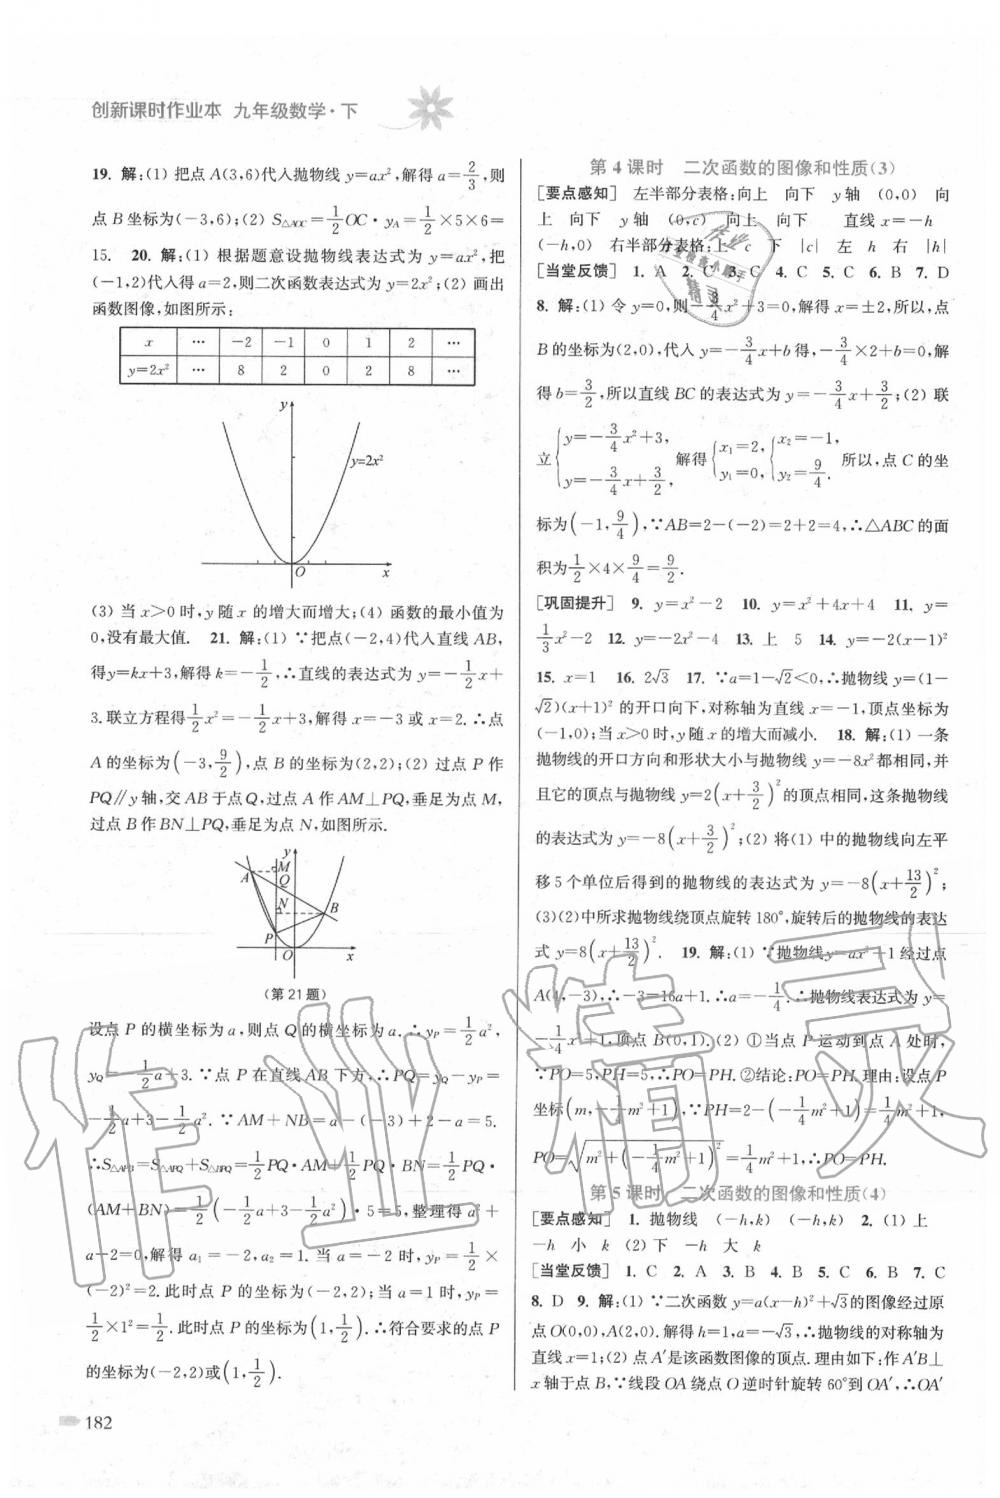 创新课时作业本 九年级数学·下
19. 解:(1) 把点 A(3,6)代入抛物线 y=ax²,解得 a=2/3,则
点 B 坐标为(-3,6);(2) S△AOC=1/2OC·yA=1/2×5×6=
15. 20. 解:(1) 根据题意设抛物线表达式为 y=ax²,把
(-1,2)代入得 a=2,则二次函数表达式为 y=2x²;(2) 画出
函数图像,如图所示:
x … -2 -1 0 1 2 …
y=2x² … 8 2 0 2 8 …
y
y=2x²
O x
(3) 当 x>0时,y 随 x 的增大而增大;(4) 函数的最小值为
0,没有最大值. 21. 解:(1) ∵把点(-2,4)代入直线 AB,
得y=kx+3,解得 k=-1/2,∴直线的表达式为 y=-1/2x+
3.联立方程得1/2x²=-1/2x+3,解得 x=-3或 x=2.∴点
A 的坐标为(-3,9/2),点 B 的坐标为(2,2);(2) 过点 P 作
PQ∥y 轴,交 AB 于点Q,过点 A 作 AM⊥PQ,垂足为点 M,
过点 B 作 BN⊥PQ,垂足为点 N,如图所示.
y
A M
Q
N B
P
O x
(第 21 题)
设点 P 的横坐标为 a,则点 Q 的横坐标为 a.∴yP=1/2a²,
yQ=-1/2a+3.∵点 P 在直线 AB 下方,∴PQ=yQ-yP=
-1/2a+3-1/2a².∵AM+NB=a-(-3)+2-a=5.
∴S△APB=S△APQ+S△BPQ=1/2PQ·AM+1/2PQ·BN=1/2PQ·
(AM+BN)=1/2(-1/2a+3-1/2a²)·5=5,整理得 a²+
a-2=0,解得 a₁=-2,a₂=1.当 a=-2 时,yP=1/2×
(-2)²=2.此时点 P 的坐标为(-2,2);当 a=1 时,yP=
1/2×1²=1/2.此时点 P 的坐标为(1,1/2).∴符合要求的点 P
的坐标为(-2,2)或(1,1/2).
182
第 4 课时 二次函数的图像和性质(3)
[要点感知] 左半部分表格:向上 向下 y 轴 (0,0) 向
上 向下 y 轴 (0,c) 向上 向下 直线 x=-h
(-h,0) 右半部分表格:上 c 下 |c| 左 h 右 |h|
[当堂反馈] 1. A 2. C 3. C 4. C 5. C 6. B 7. D
8. 解:(1) 令 y=0,则-3/4x²+3=0,解得 x=±2,所以,点
B 的坐标为(2,0),代入 y=-3/4x+b得,-3/4×2+b=0,解
得 b=3/2,所以直线 BC 的表达式为 y=-3/4x+3/2;(2) 联
立{y=-3/4x²+3, y=-3/4x+3/2, 解得{x₁=2, y₁=0, {x₂=-1, y₂=9/4. 所以,点 C 的坐
标为(-1,9/4),∵AB=2-(-2)=2+2=4,∴△ABC 的面
积为1/2×4×9/4=9/2.
[巩固提升] 9. y=x²-2 10. y=x²+4x+4 11. y=
1/3x²-2 12. y=-2x²-4 13. 上 5 14. y=-2(x-1)²
15. x=1 16. 2√3 17. ∵a=1-√2<0,∴抛物线 y=(1-
√2)(x+1)² 的开口向下,对称轴为直线 x=-1,顶点坐标为
(-1,0);当 x>0时,y 随 x 的增大而减小. 18. 解:(1) 一条
抛物线的开口方向和形状大小与抛物线 y=-8x²都相同,并
且它的顶点与抛物线 y=2(x+3/2)²的顶点相同,这条抛物线
的表达式为 y=-8(x+3/2)²;(2) 将(1) 中的抛物线向左平
移 5 个单位后得到的抛物线的表达式为 y=-8(x+13/2)²;
(3)(2)中所求抛物线绕顶点旋转 180°,旋转后的抛物线的表达
式 y=8(x+13/2)². 19. 解:(1) ∵抛物线y=ax²+1 经过点
A(4,-3),∴-3=16a+1,∴a=-1/4,∴抛物线表达式为 y=
-1/4x²+1,顶点 B(0,1).(2) ①当点 P 运动到点 A 处时,
∵PO=5,PH=5,∴PO=PH.②结论:PO=PH.理由:设点 P
坐标(m,-1/4m²+1),∵PH=2-(-1/4m²+1)=1/4m²+1,
PO=√(m²+(-1/4m²+1)²)=1/4m²+1,∴PO=PH.
第 5 课时 二次函数的图像和性质(4)
[要点感知] 1. 抛物线 (-h,k) (-h,k) 2. (1) 上
-h 小 k (2) 下 -h 大 k
[当堂反馈] 1. C 2. A 3. B 4. B 5. C 6. B 7. C
8. D 9. 解:(1) ∵二次函数 y=a(x-h)²+√3的图像经过原
点 O(0,0),A(2,0).解得 h=1,a=-√3,∴抛物线的对称轴为
直线 x=1;(2) 点 A′是该函数图像的顶点.理由如下:作 A′B⊥
x 轴于点 B,∵线段 OA 绕点 O 逆时针旋转 60°到 OA′,∴OA′
作业精灵